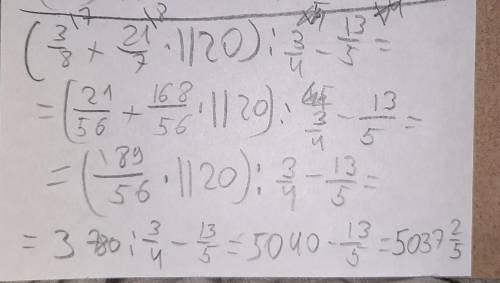 (3/8 \7 + 21/7 \8 · 1120) : 3/4 - 13/5 =
= (21/56 + 168/56 · 1120) : 3/4 - 13/5 =
= (189/56 · 1120) : 3/4 - 13/5 =
= 3780 : 3/4 - 13/5 = 5040 - 13/5 = 5037 2/5